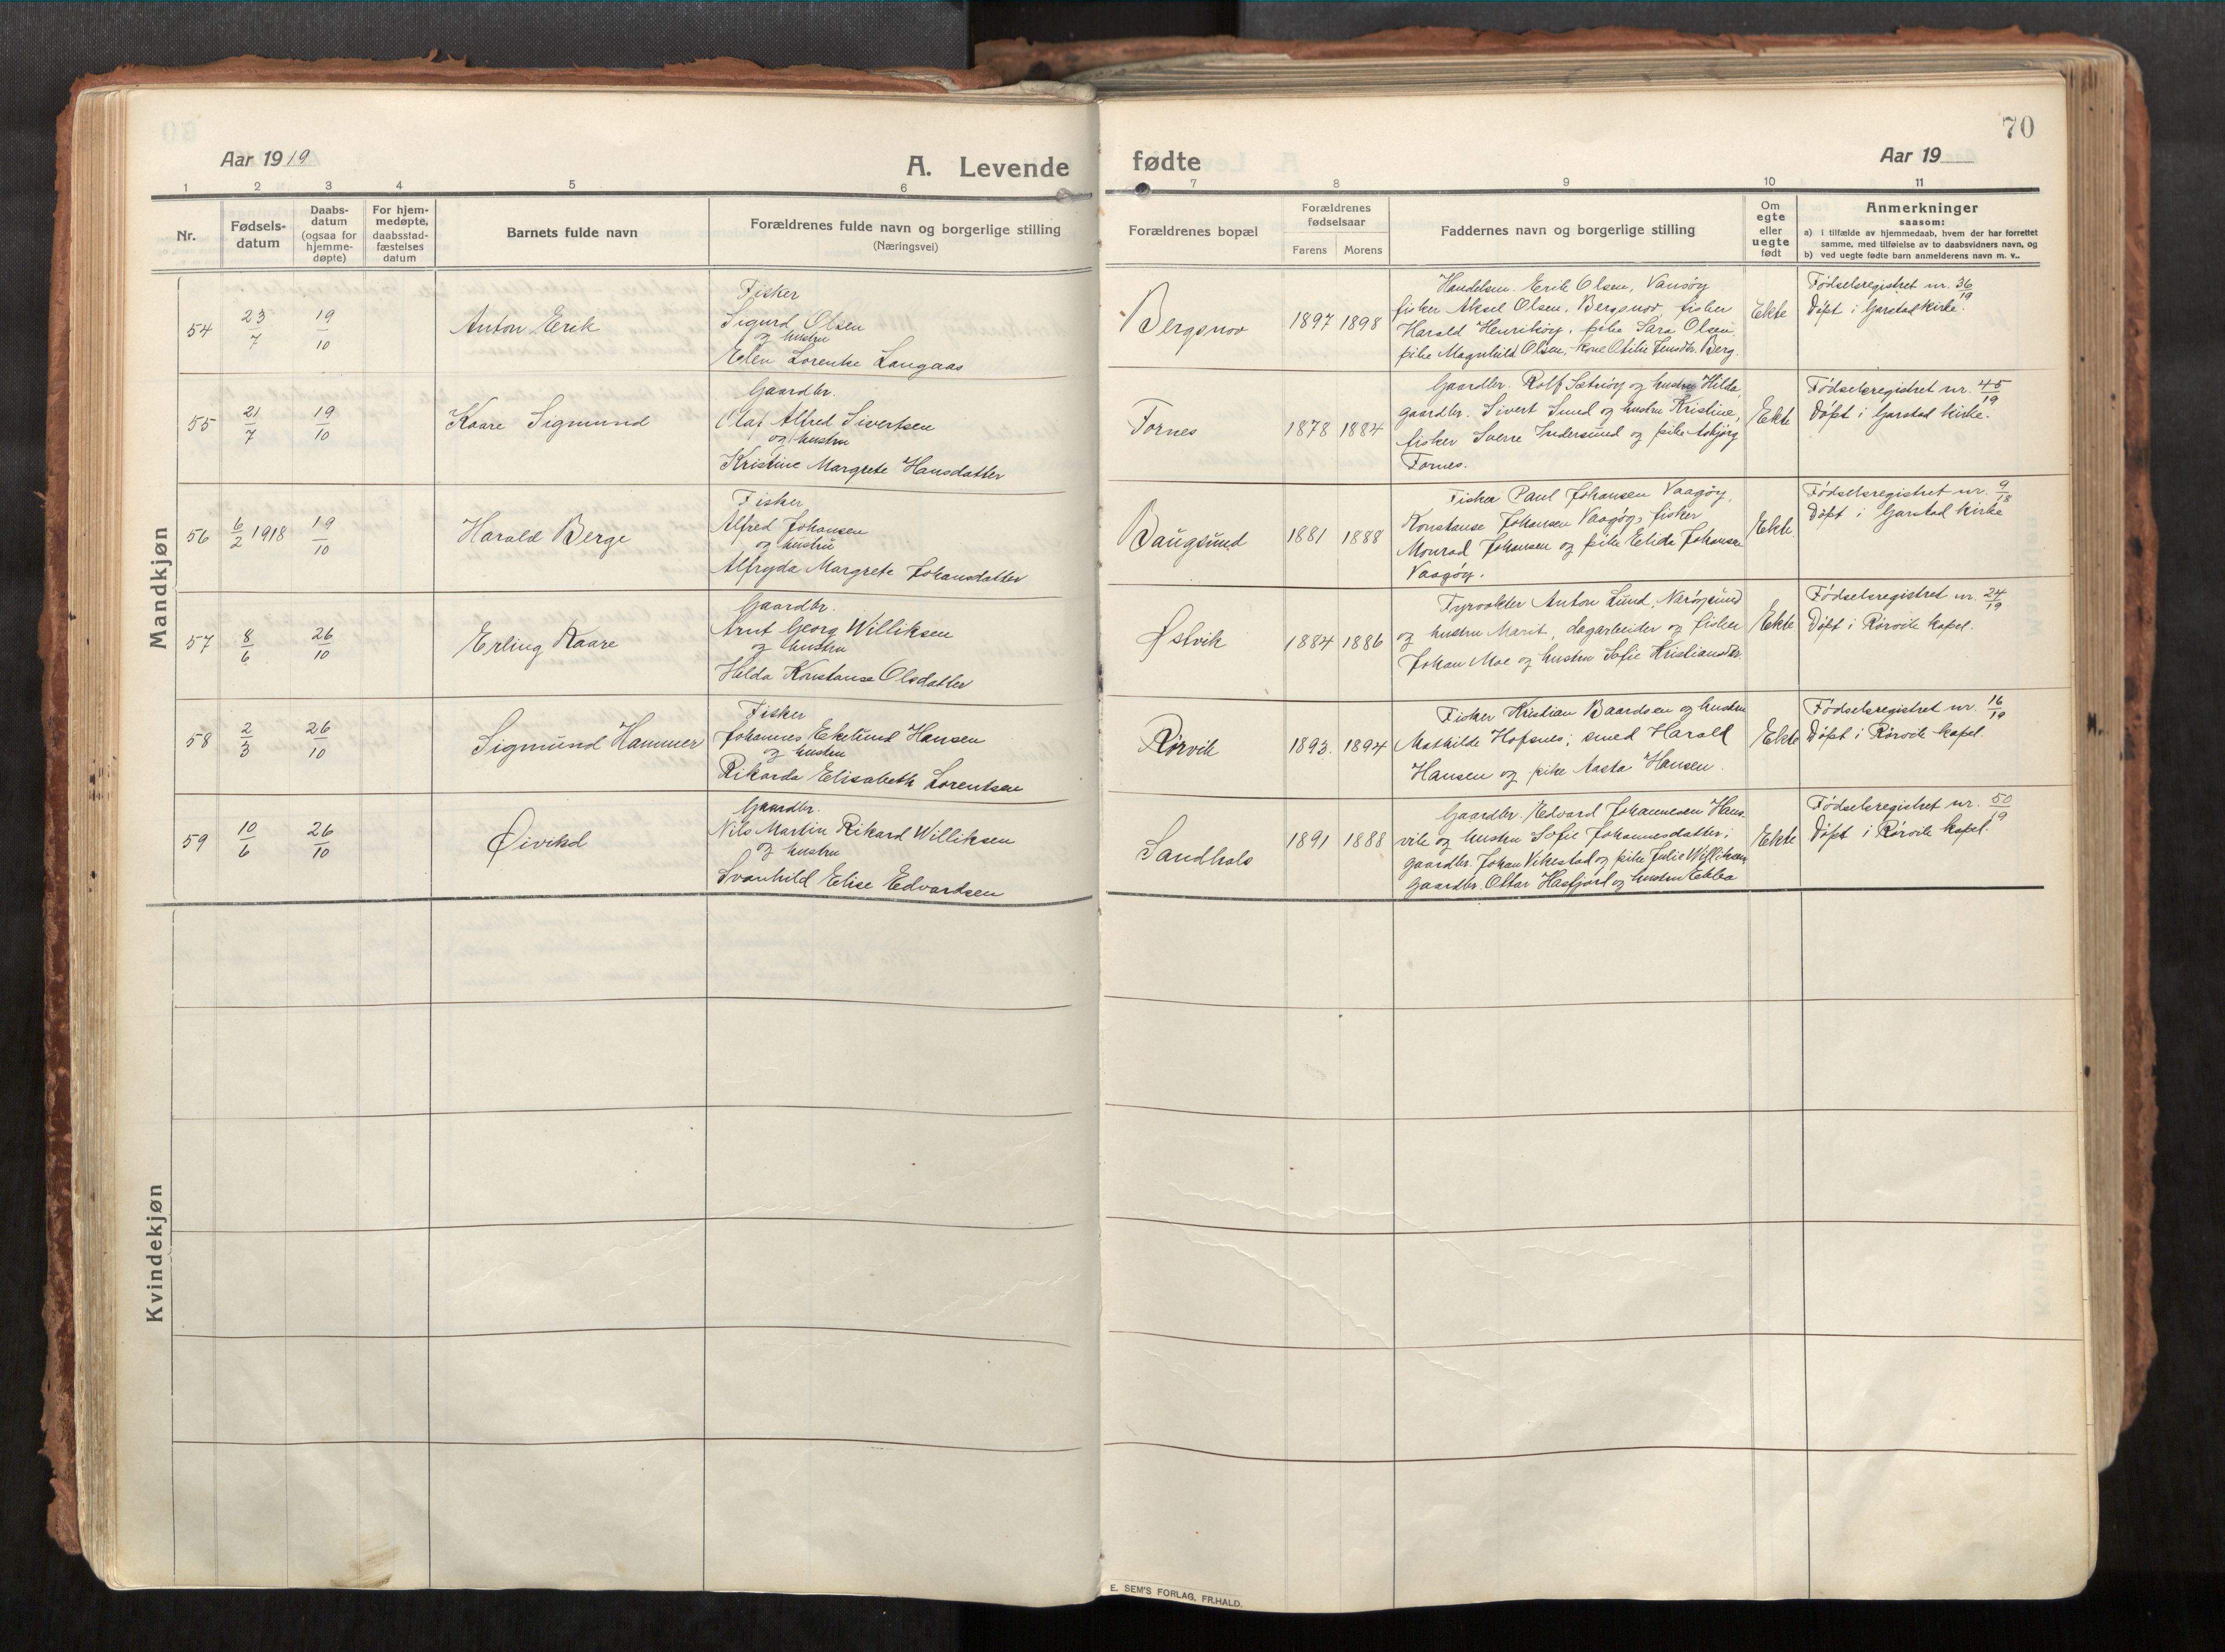 70
Aar 1919
A. Levende
fødte
Aar 19
1 2 3 4 5 6
7 8 9 10 11
Nr.
Fødsels-
datum
Daabs-
datum
(ogsaa for
hjemme-
døpte)
For hjem-
medøpte,
daabsstad-
fæstelses
datum
Barnets fulde navn
Forældrenes fulde navn og borgerlige stilling
(Næringsvei)
Forældrenes bopæl
Forældrenes
fødselsaar
Farens Morens
Faddernes navn og borgerlige stilling
Om
egte
eller
uegte
født
Anmerkninger
saasom:
a) i tilfælde av hjemmedaab, hvem der har forrettet
samme, med tilføielse av to daabsvidners navn, og
b) ved uegte fødte barn anmelderens navn m. v..
Mandkjøn
54
23/7
19/10
Anton Erik
Fisker
Sigurd Olsen
og hustru
Elen Lorentse Langaas
Bergsnov
1897 1898
Handelsm. Erik Olsen, Vansøy
fisker Aksel Olsen, Bergsnov, fisker
Harald Henriksøy, pike Sara Olsen
pike Magnhild Olsen, kone Otilie Jensdtr. Berg.
Ekte
Fødselsregistret nr. 36/19
Døpt i Garstad kirke.
55
21/7
19/10
Kaare Sigmund
Gaardbr.
Olaf Alfred Sivertsen
og hustru
Kristine Margrete Hansdatter
Fornes
1878 1884
Gaardbr. Rolf Sætrøy og hustru Hilda,
gaardbr. Sivert Sund og hustru Kristine,
fisker Sverre Indersund og pike Asbjørg
Fornes.
Ekte
Fødselsregistret nr. 45/19
Døpt i Garstad kirke.
56
6/2 1918
19/10
Harald Berge
Fisker
Alfred Johansen
og hustru
Alfryda Margrete Johansdatter
Baugsund
1881 1888
Fisker Paul Johansen Vaagøy,
Konstanse Johansen Vaagøy, fisker
Monrad Johansen og pike Elida Johansen
Vaagøy.
Ekte.
Fødselsregistret nr. 9/18
Døpt i Garstad kirke
57
8/6
26/10
Erling Kaare
Gaardbr.
Arnt Georg Williksen
og hustru
Hilda Konstanse Olsdatter
Østvik
1884 1886
Fyrvokter Anton Lund, Nærøysund
og hustru Marit, dagarbeider og fisker
Johan Moe og hustru Sofie Kristiansdtr.
Ekte
Fødselsregistret nr. 24/19
Døpt i Rørvik kapel.
58
2/3
26/10
Sigmund Hammer
Fisker
Johannes Ekelund Hansen
og hustru
Rikarda Elisabeth Lorentsen
Rørvik
1893. 1894
Fisker Kristian Baardsen og hustru
Mathilde Hofsnes; smed Harald
Hansen og pike Aasta Hansen.
Ekte
Fødselsregistret nr. 16/19
Døpt i Rørvik kapel.
59
10/6
26/10
Øivikd
Gaardbr.
Nils Martin Rikard Williksen
og hustru
Svanhild Elise Edvardsen
Sandhals
1891 1888
Gaardbr. Edvard Johannesen Hans-
vik og hustru Sofie Johannesdatter;
gaardbr. Johan Vikestad og pike Julie Williksen
Gaardbr. Ottar Hasfjord og hustru Ebbba
Ekte
Fødselsregistret nr. 50/19
Døpt i Rørvik kapel.
Kvindekjøn
E. SEM'S FORLAG, FR.HALD.